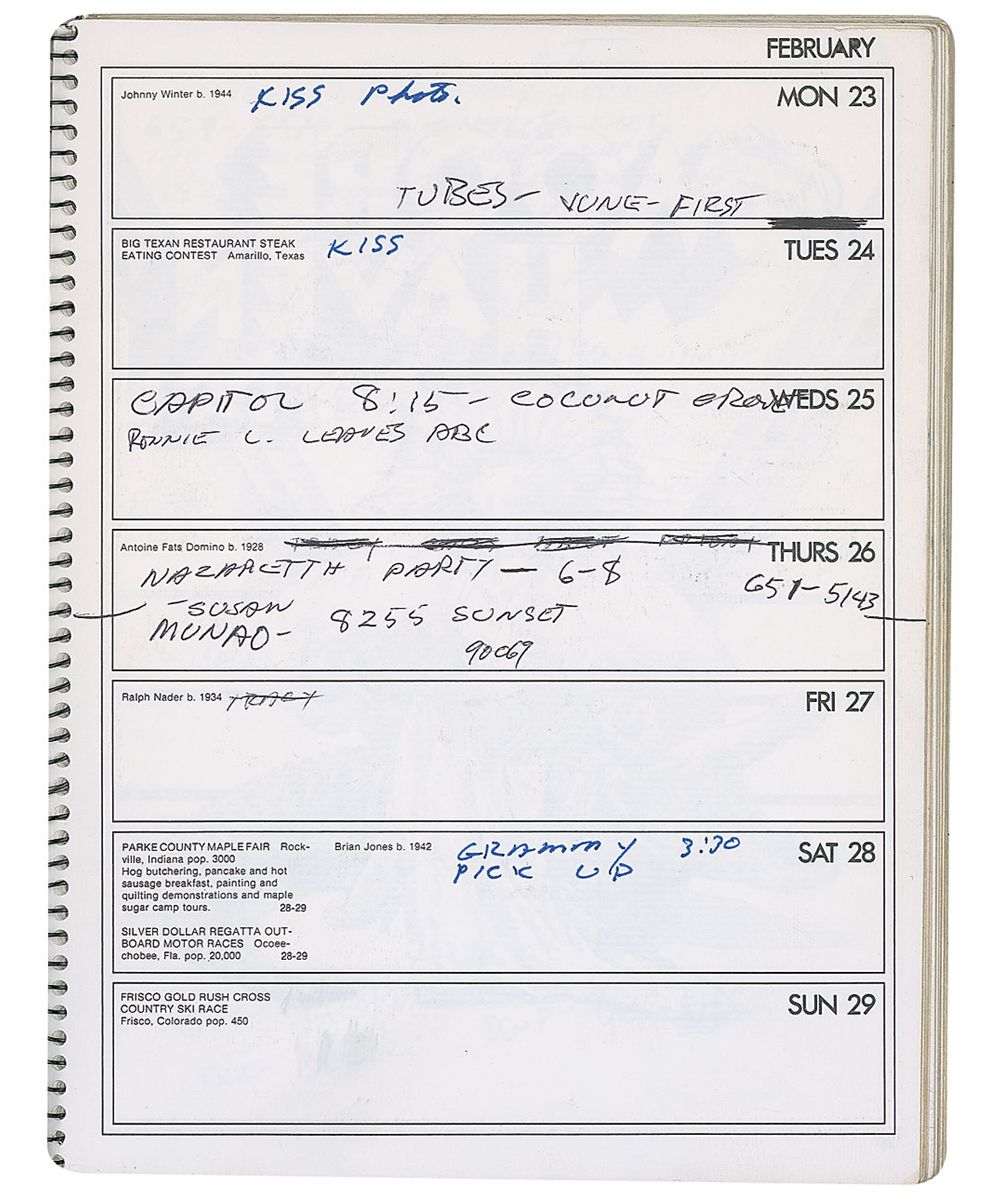 FEBRUARY
Johnny Winter b. 1944 KISS Photo. MON 23
TUBES - JUNE - FIRST
BIG TEXAN RESTAURANT STEAK
EATING CONTEST Amarillo, Texas KISS TUES 24
CAPITOL 8:15 - COCONUT GROVE WEDS 25
RONNIE L. LEAVES ABC
Antoine Fats Domino b. 1928 THURS 26
NAZARETTH PARTY - 6-8
651-5143
-SUSAN
MUNAO- 8255 SUNSET
90069
Ralph Nader b. 1934 TRACY FRI 27
PARKE COUNTY MAPLE FAIR Rock-
ville, Indiana pop. 3000
Hog butchering, pancake and hot
sausage breakfast, painting and
quilting demonstrations and maple
sugar camp tours. 28-29
Brian Jones b. 1942 GRAMMY 3:30 SAT 28
PICK UP
SILVER DOLLAR REGATTA OUT-
BOARD MOTOR RACES Ocoee-
chobee, Fla. pop. 20,000 28-29
FRISCO GOLD RUSH CROSS
COUNTRY SKI RACE
Frisco, Colorado pop. 450
SUN 29